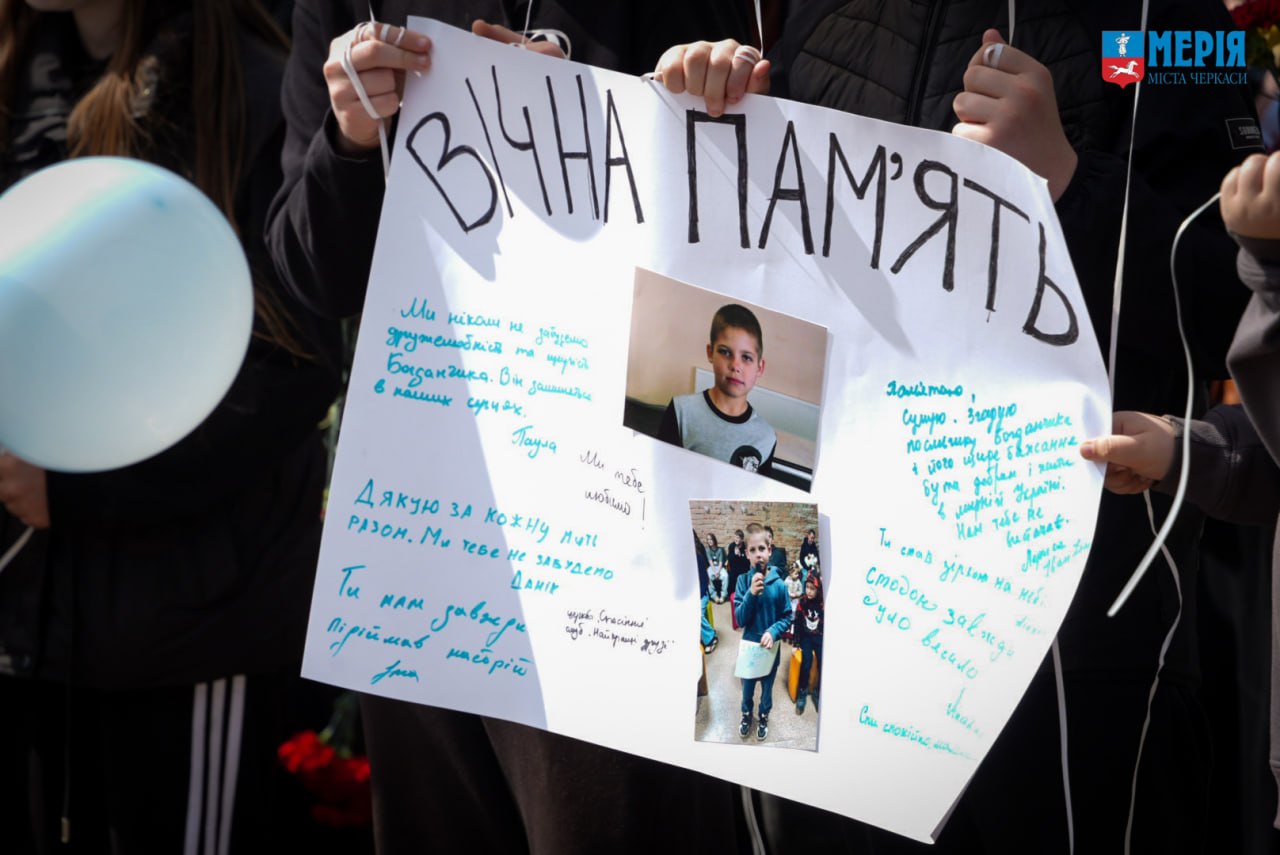 МЕРІЯ
МІСТА ЧЕРКАСИ
ВІЧНА ПАМ'ЯТЬ
Ми ніколи не забудемо
дружелюбність та щирість
Богданчика. Він залишиться
в наших серцях.
Паула
Ми тебе
любимо!
Дякую за кожну мить
разом. Ми тебе не забудемо
Данік
Ти нам завжди
піріймав настрій
церква "Спасіння"
клуб "Найкращі друзі"
Пам'ятаю,
сумую. Згадую
посмішку Богданчика
і його щире бажання
бути добрим і жити
в мирній Україні.
Нам тебе не
вистачає.
Ти став зіркою на небі.
с тобою завжди
було весело
Спи спокійно,